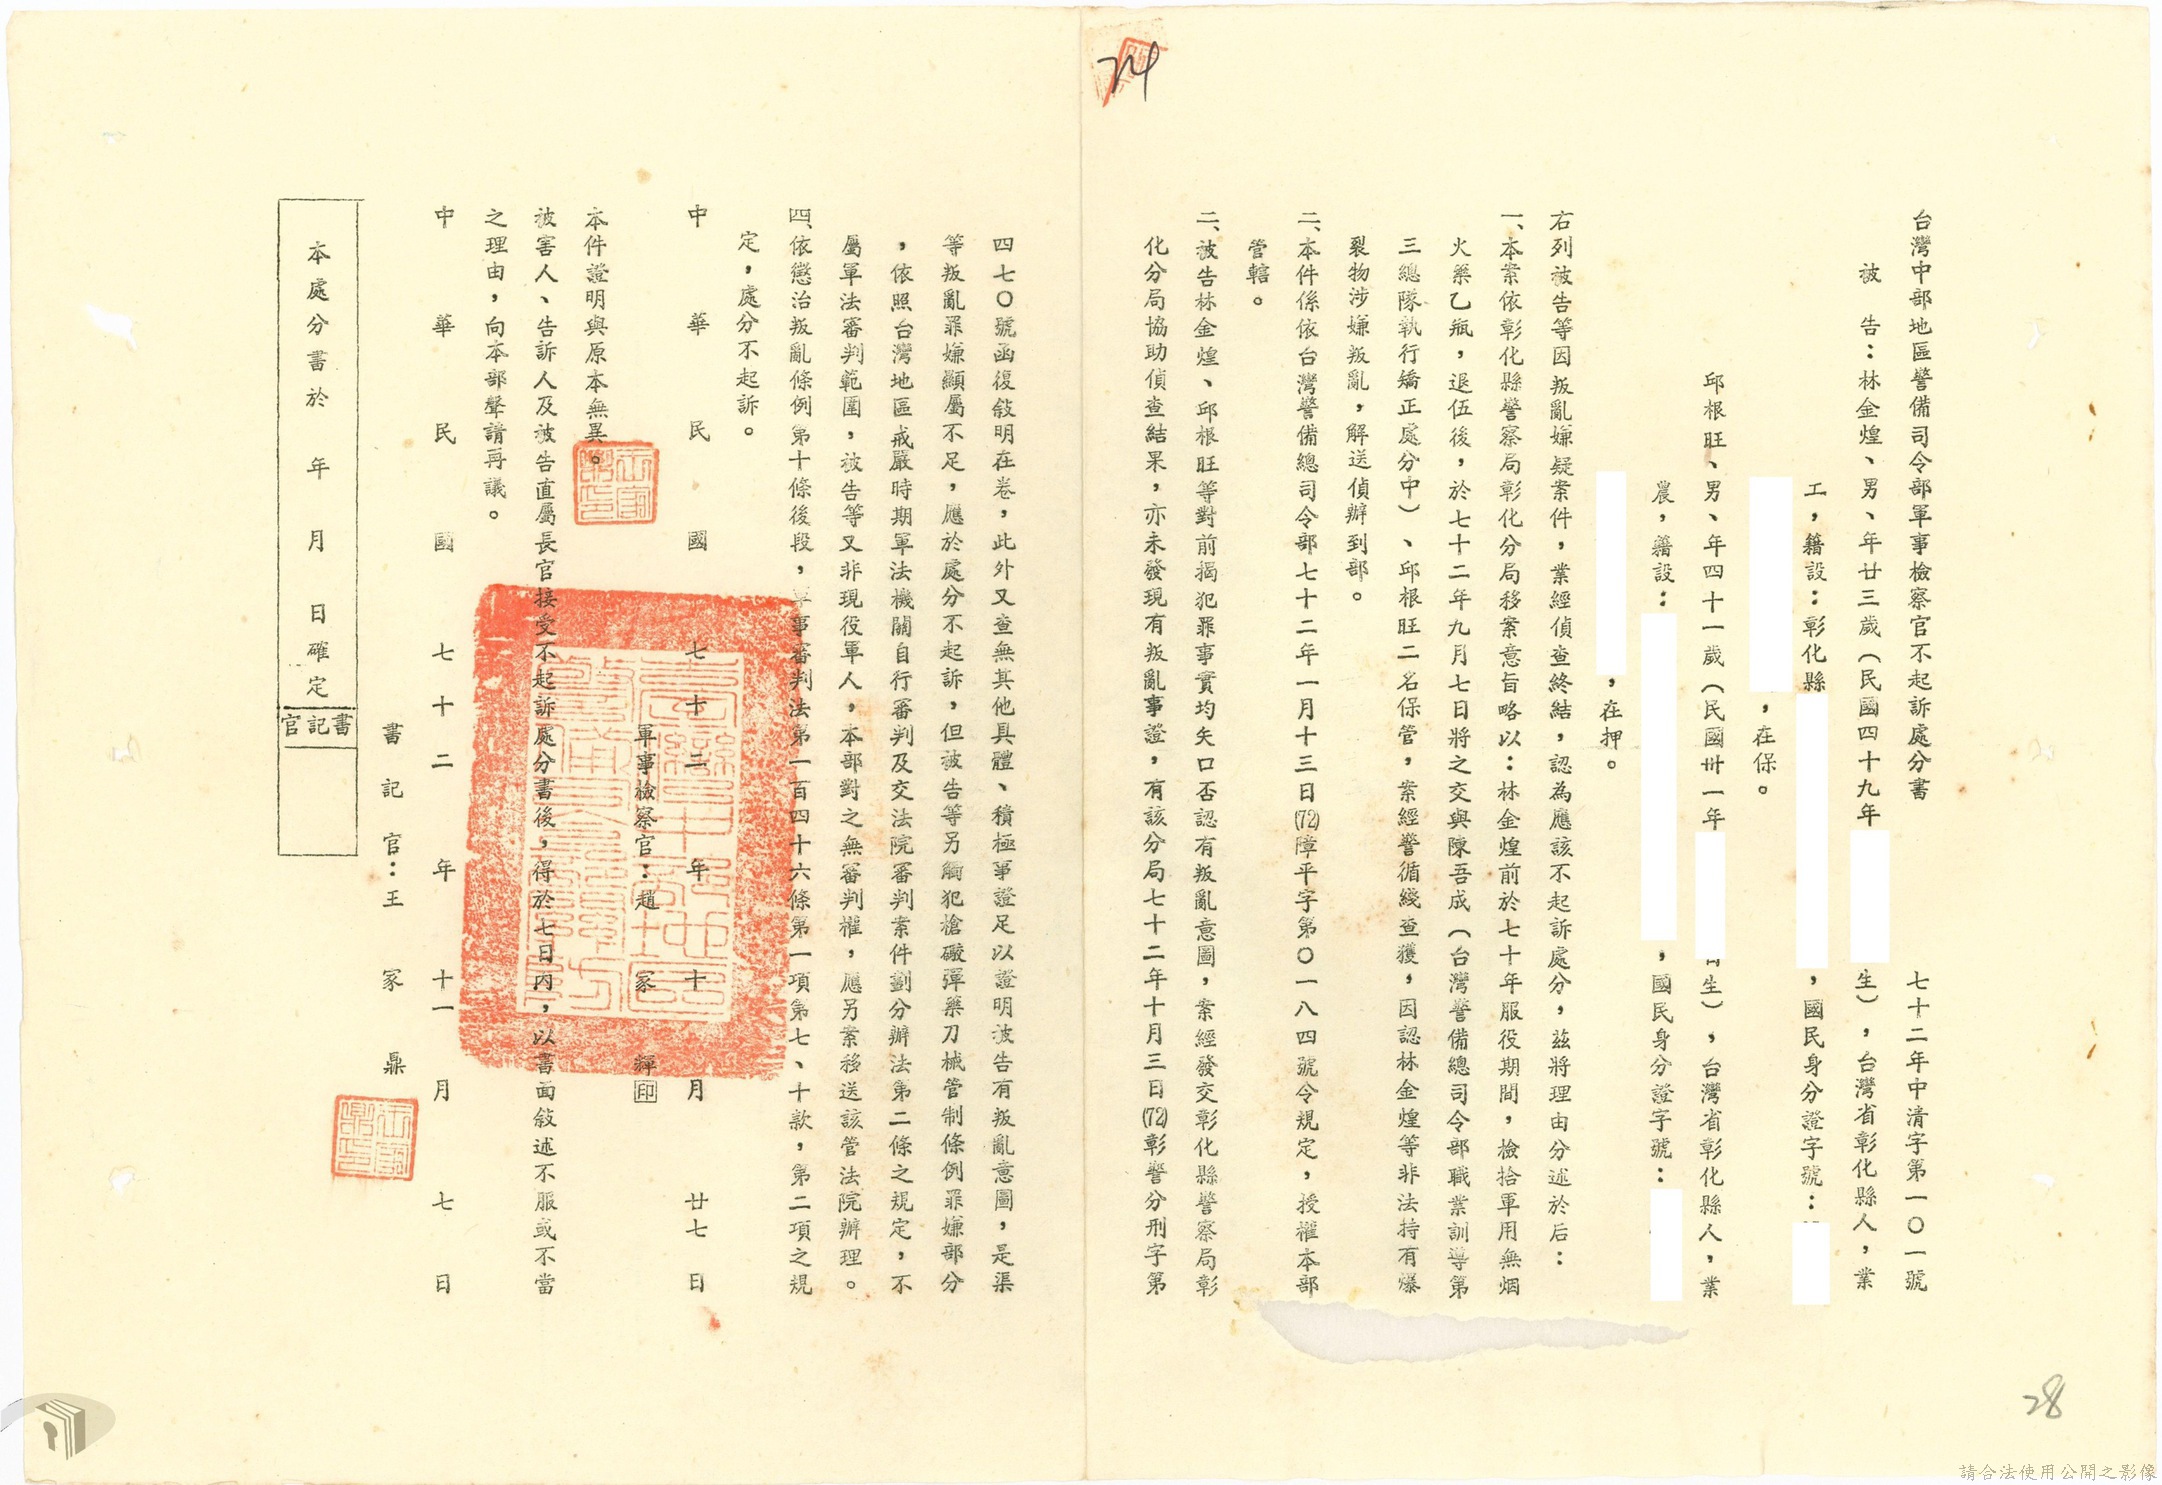 24
台灣中部地區警備司令部軍事檢察官不起訴處分書
七十二年中清字第一〇一號
被告：林金煌、男、年廿三歲（民國四十九年
生），台灣省彰化縣人，業
工，籍設：彰化縣
，國民身分證字號：
，在保。
邱根旺、男、年四十一歲（民國卅一年
生），台灣省彰化縣人，業
農，籍設：
，國民身分證字號：
，在押。
右列被告等因叛亂嫌疑案件，業經偵查終結，認為應該不起訴處分，茲將理由分述於后：
一、本案依彰化縣警察局彰化分局移案意旨略以：林金煌前於七十年服役期間，檢拾軍用無烟
火藥乙瓶，退伍後，於七十二年九月七日將之交與陳吾成（台灣警備總司令部職業訓導第
三總隊執行矯正處分中）、邱根旺二名保管，案經警循綫查獲，因認林金煌等非法持有爆
裂物涉嫌叛亂，解送偵辦到部。
二、本件係依台灣警備總司令部七十二年一月十三日(72)障平字第〇一八四號令規定，授權本部
管轄。
二、被告林金煌、邱根旺等對前揭犯罪事實均矢口否認有叛亂意圖，案經發交彰化縣警察局彰
化分局協助偵查結果，亦未發現有叛亂事證，有該分局七十二年十月三日(72)彰警分刑字第
四七〇號函復敍明在卷，此外又查無其他具體、積極事證足以證明被告有叛亂意圖，是渠
等叛亂罪嫌顯屬不足，應於處分不起訴，但被告等另觸犯槍礮彈藥刀械管制條例罪嫌部分
，依照台灣地區戒嚴時期軍法機關自行審判及交法院審判案件劃分辦法第二條之規定，不
屬軍法審判範圍，被告等又非現役軍人，本部對之無審判權，應另案移送該管法院辦理。
四、依懲治叛亂條例第十條後段，軍事審判法第一百四十六條第一項第七、十款，第二項之規
定，處分不起訴。
中華民國七十二年十月廿七日
軍事檢察官：趙家輝印
本件證明與原本無異。
被害人、告訴人及被告直屬長官接受不起訴處分書後，得於七日內，以書面敍述不服或不當
之理由，向本部聲請再議。
中華民國七十二年十一月七日
書記官：王家鼎
本處分書於年月日確定
書記官
28
請合法使用公開之影像